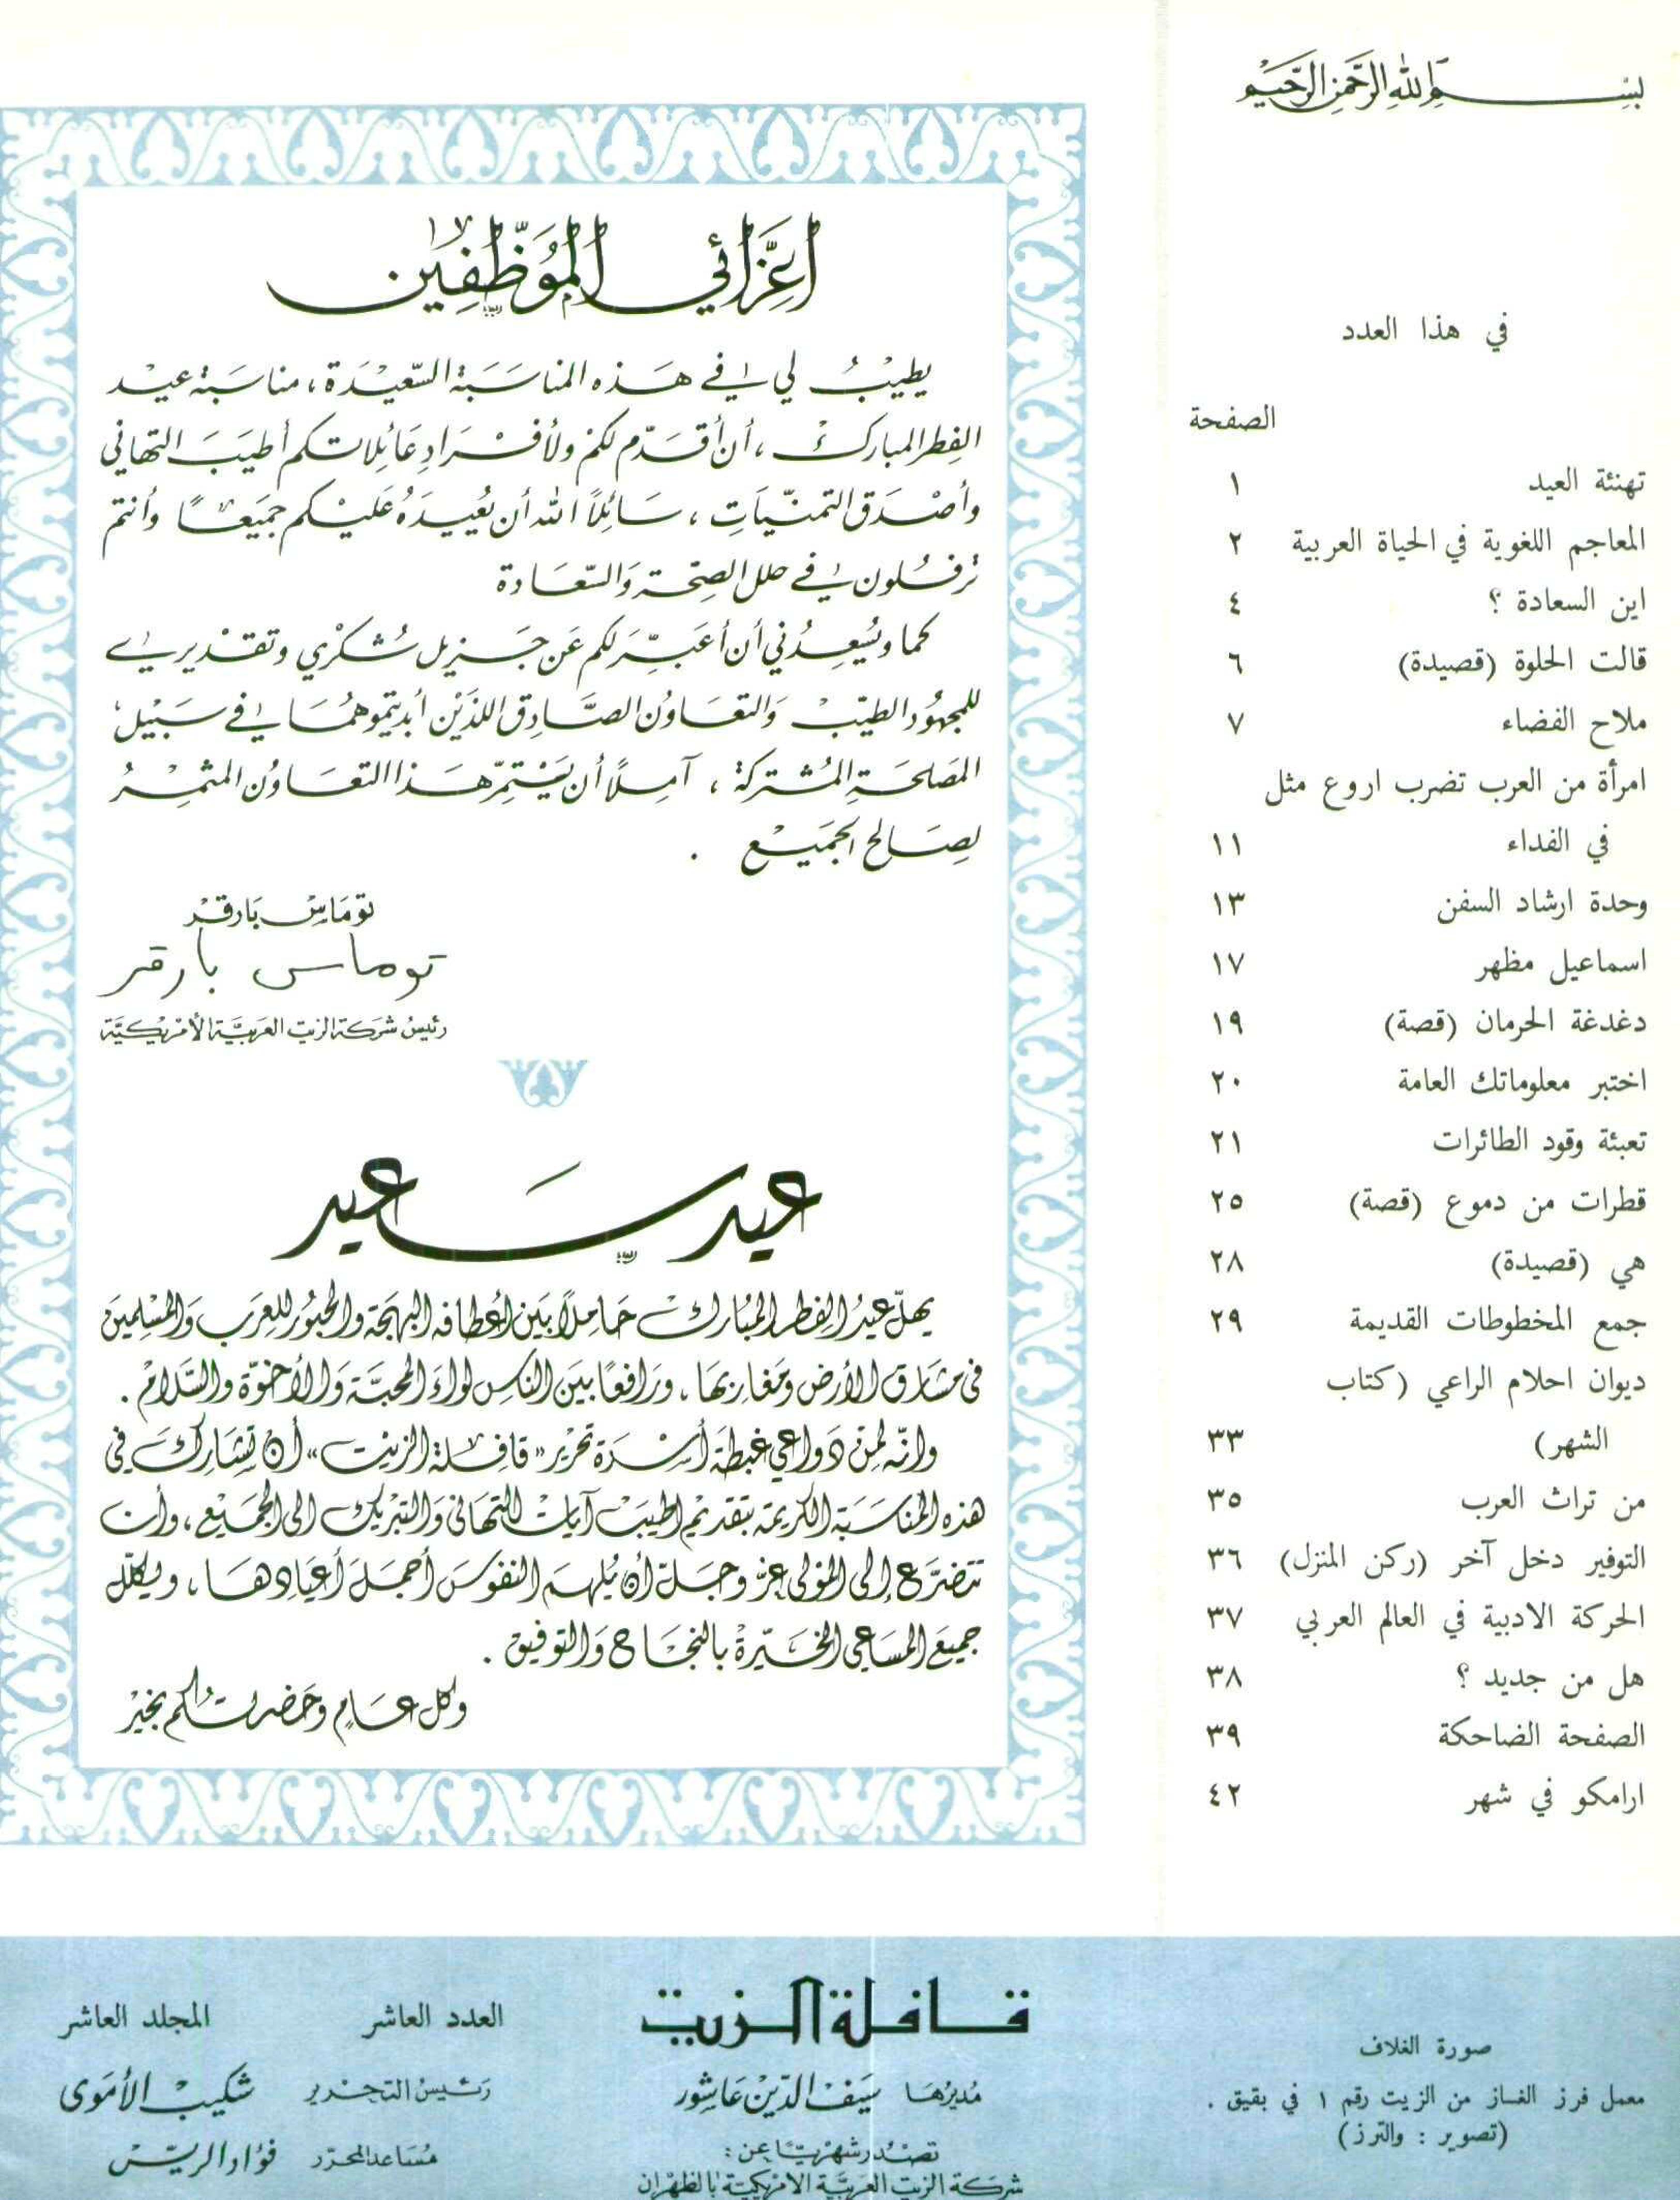 بسم الله الرحمن الرحيم
في هذا العدد
الصفحة
تهنئة العيد ١
المعاجم اللغوية في الحياة العربية ٢
اين السعادة ؟ ٤
قالت الحلوة (قصيدة) ٦
ملاح الفضاء ٧
امرأة من العرب تضرب اروع مثل
في الفداء ١١
وحدة ارشاد السفن ١٣
اسماعيل مظهر ١٧
دغدغة الحرمان (قصة) ١٩
اختبر معلوماتك العامة ٢٠
تعبئة وقود الطائرات ٢١
قطرات من دموع (قصة) ٢٥
هي (قصيدة) ٢٨
جمع المخطوطات القديمة ٢٩
ديوان احلام الراعي (كتاب
الشهر) ٣٣
من تراث العرب ٣٥
التوفير دخل آخر (ركن المنزل) ٣٦
الحركة الادبية في العالم العربي ٣٧
هل من جديد ؟ ٣٨
الصفحة الضاحكة ٣٩
ارامكو في شهر ٤٢
أعزائي الموظفين
يطيب لي في هذه المناسبة السعيدة ، مناسبة عيد
الفطر المبارك ، أن أقدم لكم ولأفراد عائلاتكم أطيب التهاني
وأصدق التمنيات ، سائلاً الله أن يعيده عليكم جميعاً وأنتم
ترفلون في حلل الصحة والسعادة
كما ويسعدني أن أعبر لكم عن جزيل شكري وتقديري
للمجهود الطيب والتعاون الصادق اللذين أبديتموهما في سبيل
المصلحة المشتركة ، آملاً أن يستمر هذا التعاون المثمر
لصالح الجميع .
توماس بارقر
توماس بارقر
رئيس شركة الزيت العربية الأمريكية
عيد سعيد
يهل عيد الفطر المبارك حاملاً بين أعطافه البهجة والحبور للعرب والمسلمين
في مشارق الأرض ومغاربها ، ورافعاً بين الناس لواء المحبة والأخوة والسلام .
وانه لمن دواعي غبطة أسرة تحرير «قافلة الزيت» أن تشارك في
هذه المناسبة الكريمة بتقديم أطيب آيات التهاني والتبريك الى الجميع ، وأن
تتضرع إلى المولى عز وجل أن يلهم النفوس أجمل أعيادها ، ويكلل
جميع المساعي الخيرة بالنجاح والتوفيق .
وكل عام وحضراتكم بخير
صورة الغلاف
معمل فرز الغاز من الزيت رقم ١ في بقيق .
(تصوير : والترز)
قافلة الزيت
مديرها سيف الدين عاشور
تصدر شهرياً عن :
شركة الزيت العربية الامريكية بالظهران
العدد العاشر المجلد العاشر
رئيس التحرير شكيب الأموي
مساعد المحرر فؤاد الريس